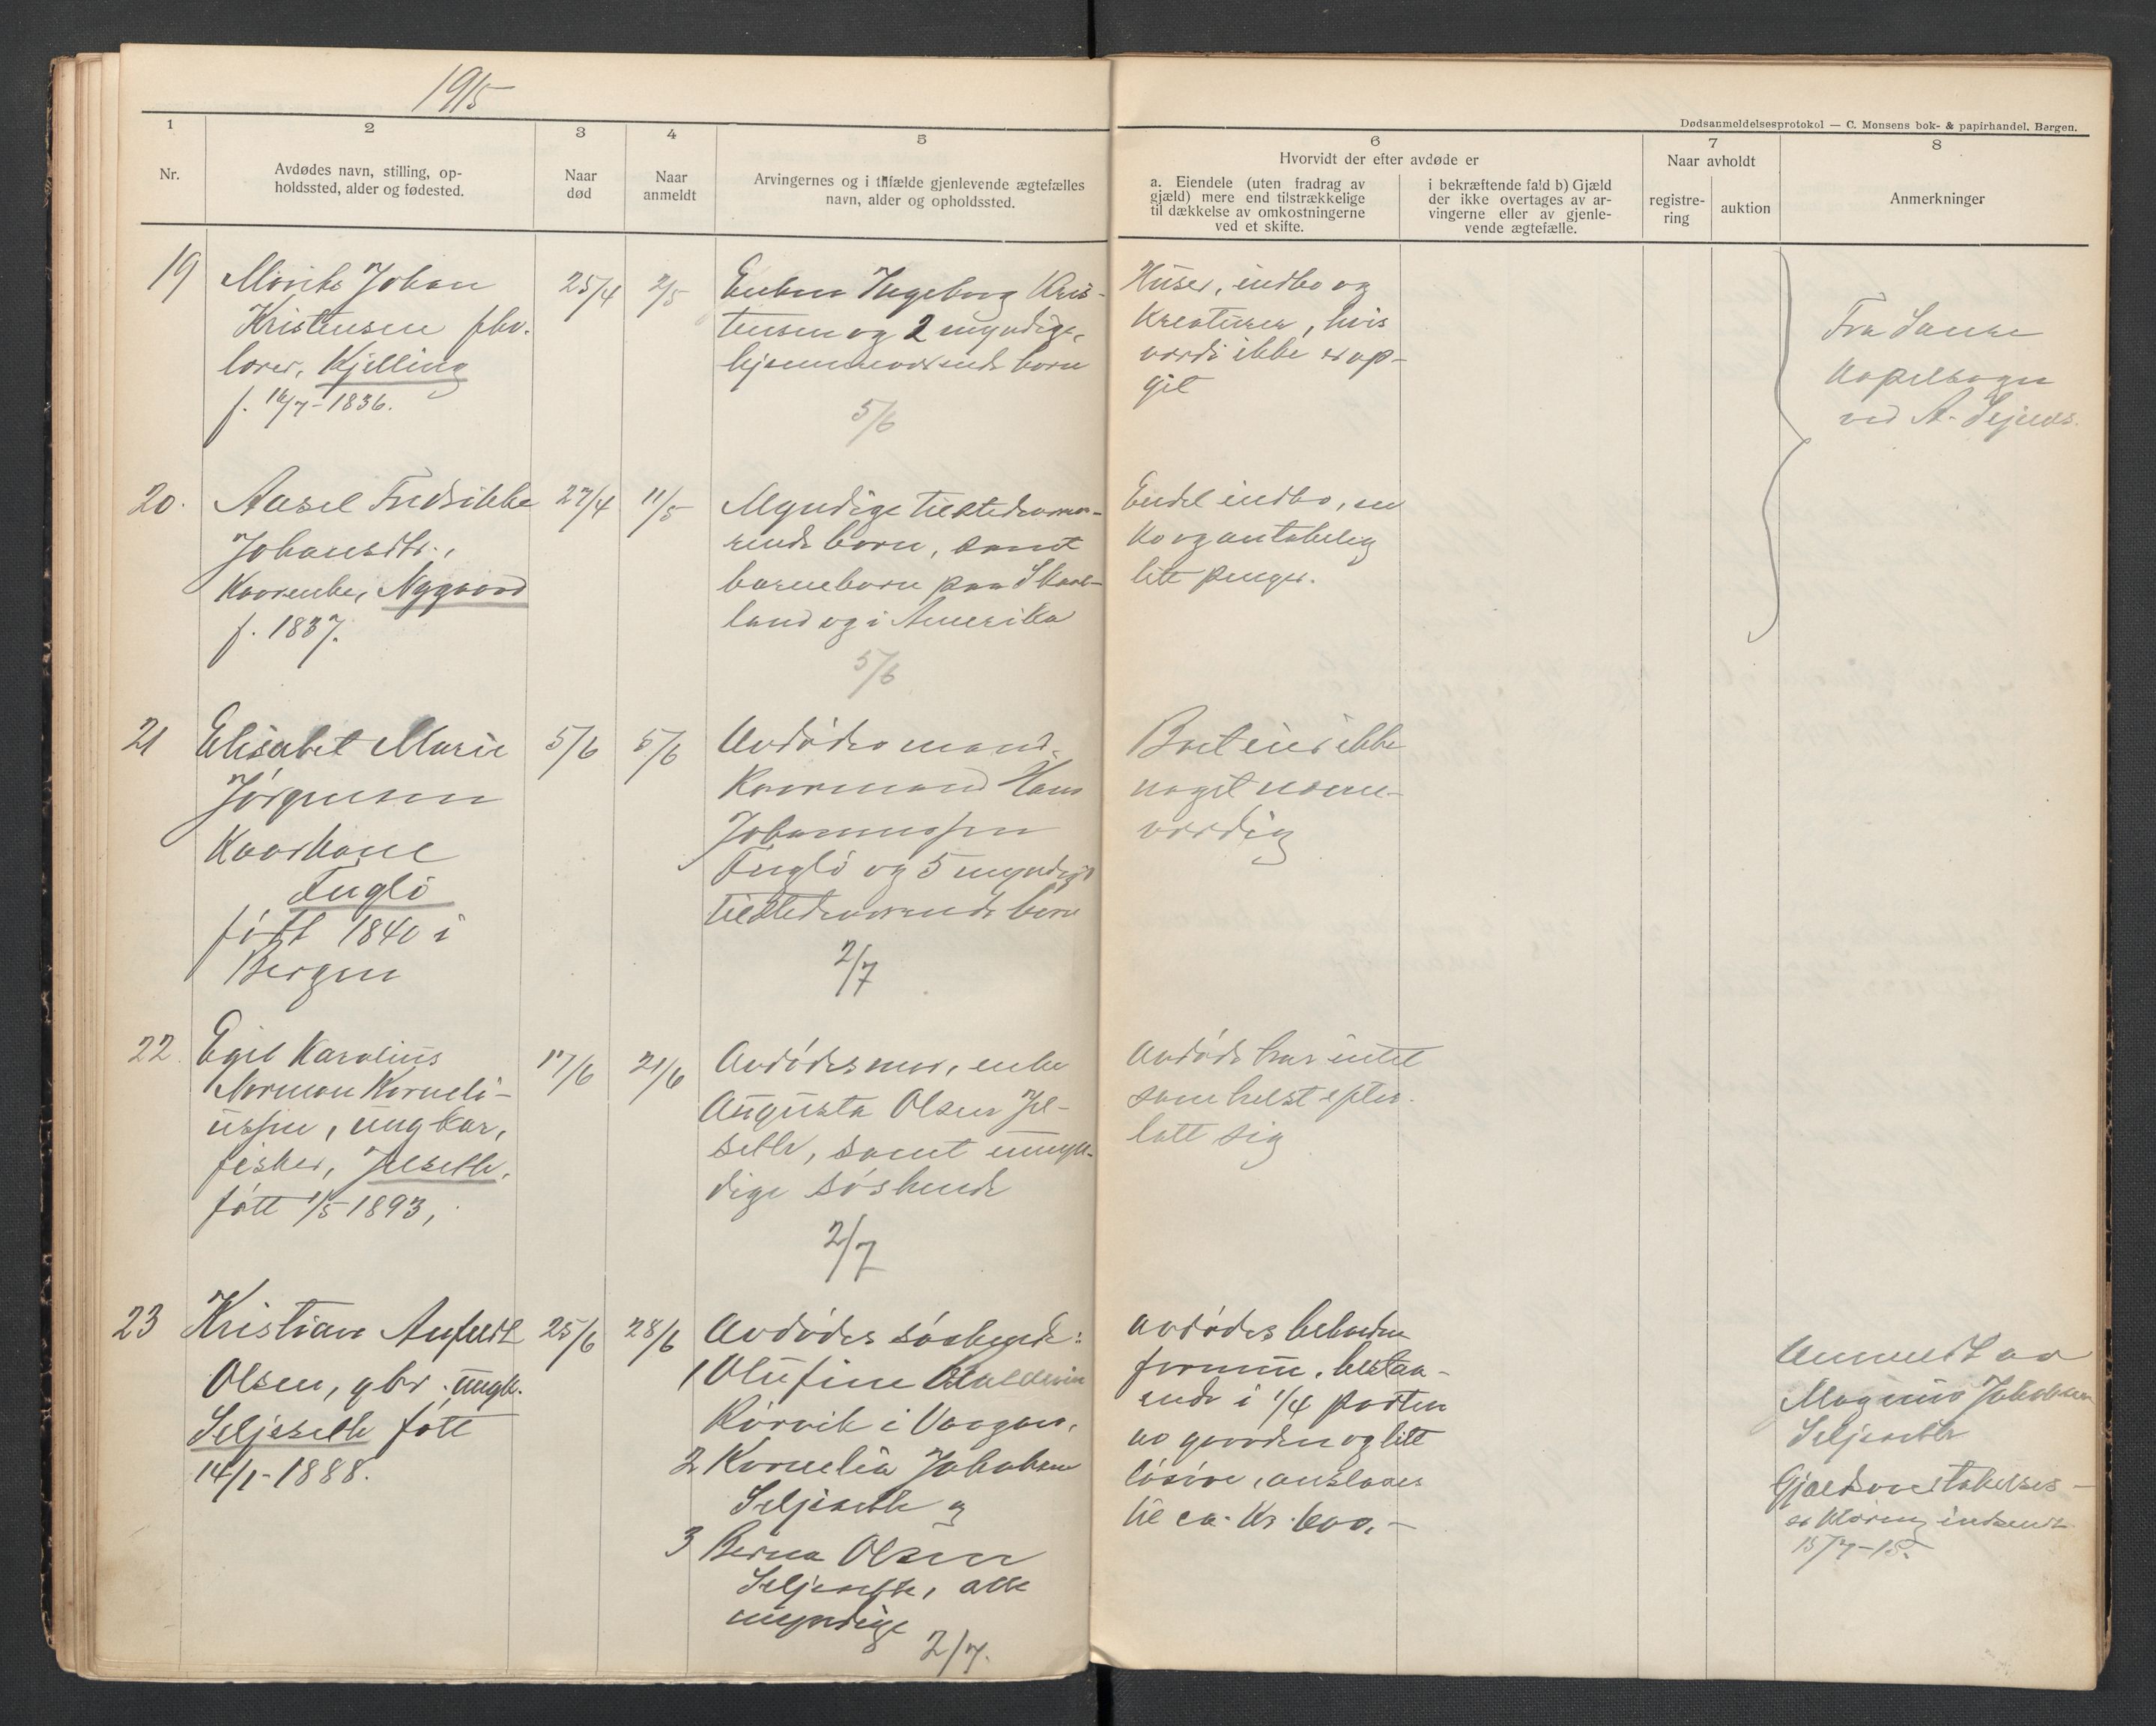 1915
Dødsanmeldelsesprotokol — C. Monsens bok- & papirhandel. Bergen.
1
2
3
4
5
6
7
8
Nr.
Avdødes navn, stilling, op-
holdssted, alder og fødested.
Naar
død
Naar
anmeldt
Arvingernes og i tilfælde gjenlevende ægtefælles
navn, alder og opholdssted.
Hvorvidt der efter avdøde er
a. Eiendele (uten fradrag av
gjæld) mere end tilstrækkelige
til dækkelse av omkostningerne
ved et skifte.
i bekræftende fald b) Gjæld
der ikke overtages av ar-
vingerne eller av gjenle-
vende ægtefælle.
Naar avholdt
registre-
ring
auktion
Anmerkninger
19
Johan
Kristensen
Kjelling
1836.
25/4
2/5
Enken Ingeborg Kris-
tensen og 2 myndige,
hjemmeværende børn
5/6
Huser, indbo og
kreaturer, hvis
værdi ikke er op-
git
Fra
ved A.
20.
Aasel Fredrikke
Johansdtr.,
Nygaard
f. 1837.
27/4
11/5
Myndige tilstedevær-
ende børn, samt
barnebørn paa
land og i Amerika
5/6
Endel indbo, en
ko og antakelig
litt penger.
21
Elisabet Marie
Jørgensen
Kaarkone
Fuglø
født 1840 i
Bergen
5/6
5/6
Avdødes mand,
Kaarmand Hans
Johannessen
Fuglø og 5 myndige
tilstedeværende børn
2/7
Boet eier ikke
noget nævne-
værdig
22.
Egil Karolius
Norman Korneli-
ussen, ungkar,
fisker,
født 1/5 1893,
17/6
21/6
Avdødes mor, enke
Augusta Olsen
samt umyn-
dige søskende
2/7
Avdøde har intet
som helst efter-
latt sig
23
Kristian Anfeldt
Olsen, gbr. ungk.
Seljeseth født
14/1-1888.
25/6
28/6
Avdødes søskende:
1 Olufine
Rørvik i Vaagan,
2 Kornelia Jakobsen
Seljeseth og
3 Berna Olsen
Seljeseth, alle
myndige
2/7.
Avdødes beholdne
formue, bestaa-
ende i 1/4 parten
av gaarden og litt
løsøre, anslaaes
til ca. Kr. 600,-
Anmeldt av
Magnus Jakobsen
Seljeseth
Gjældsovertakelses-
erklæring indsendt
15/7-15.